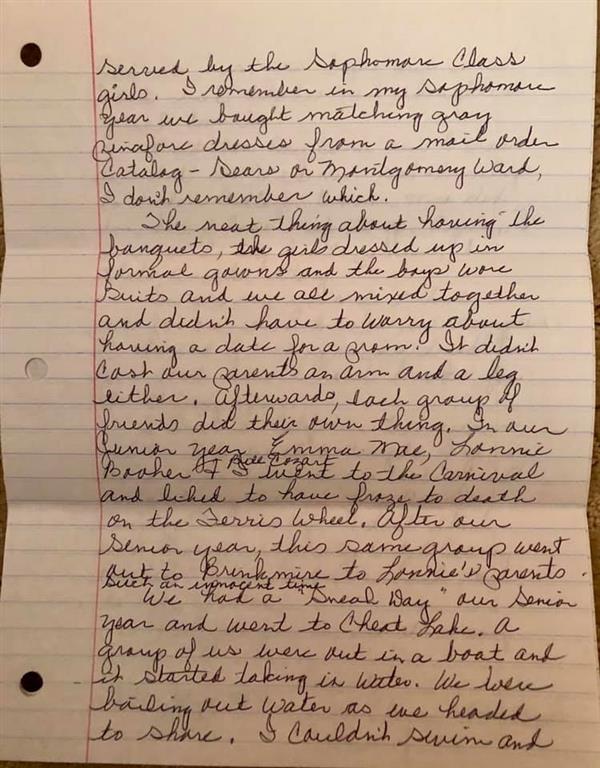 served by the Sophomore Class
girls. I remember in my sophomore
year we bought matching gray
pinafore dresses from a mail order
Catalog - Sears or Montgomery Ward,
I don't remember which.
The neat thing about having the
banquets, the girls dressed up in
formal gowns and the boys wore
Suits and we all mixed together
and didn't have to worry about
having a date for a prom. It didn't
cost our parents an arm and a leg
either. Afterwards, each group of
friends did their own thing. In our
Junior year Emma Mae, Lonnie
Booher, Cozart & I went to the Carnival
and liked to have froze to death
on the Ferris Wheel. After our
Senior year, this same group went
out to to Lonnie's parents.
Such an innocent time
We had a "Sneak Day" our Senior
year and went to Cheat Lake. A
group of us were out in a boat and
it started taking in water. We were
bailing out water as we headed
to shore. I couldn't swim and